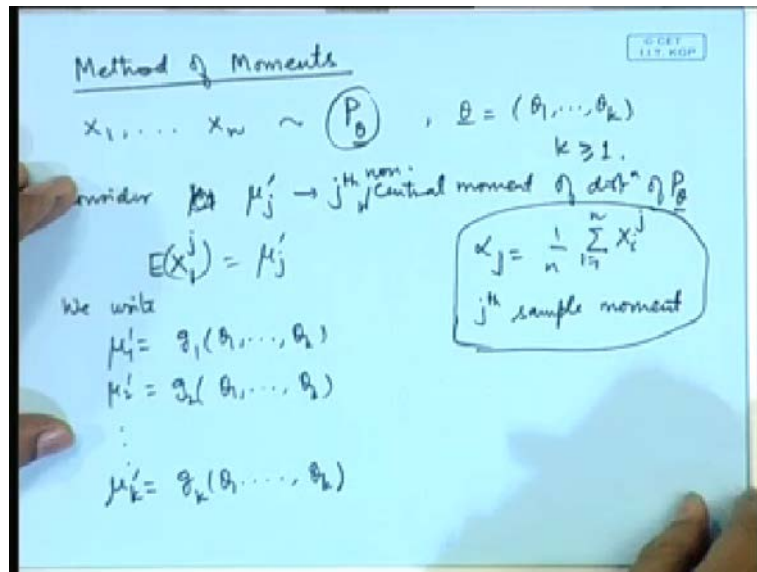 Method of Moments
C CET
I.I.T. KGP
X₁, .... Xₙ ~ P_θ , θ = (θ₁, ..., θₖ)
k ≥ 1.
onsider μⱼ' → jᵗʰ non-central moment of distⁿ of P_θ
E(X₁ʲ) = μⱼ'
αⱼ = 1/n Σᵢ₌₁ⁿ Xᵢʲ
jᵗʰ sample moment
We write
μ₁' = g₁(θ₁, ..., θₖ)
μ₂' = g₂(θ₁, ..., θₖ)
⋮
μₖ' = gₖ(θ₁ ...., θₖ)